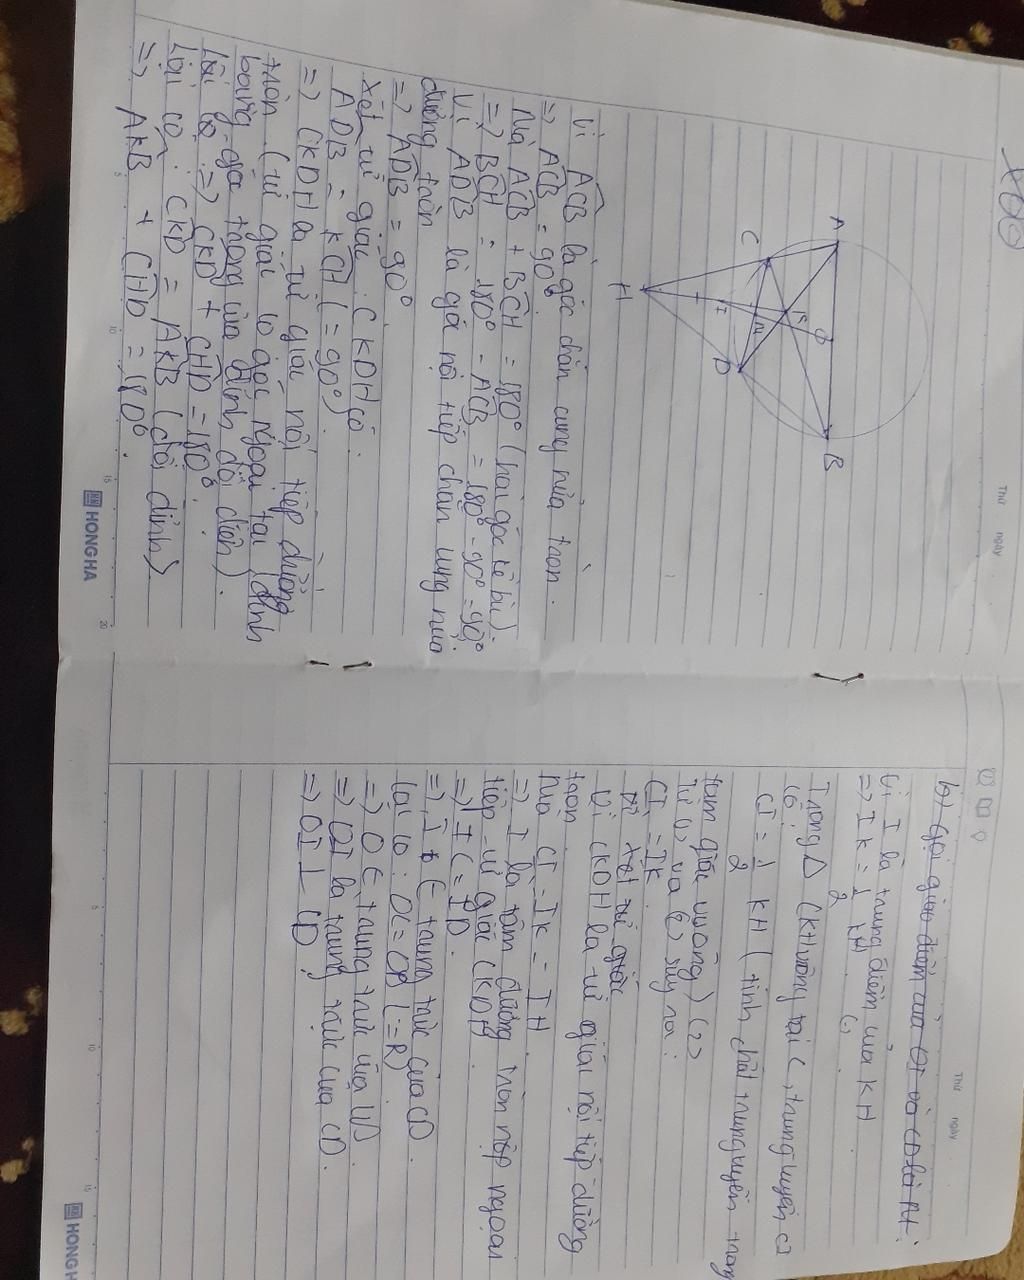 Thứ ngày
A
O
B
K
C
M
D
I
H
Vì ACB là góc chắn cung nửa tròn.
=> ACB = 90°
Mà ACB + BCH = 180° (hai góc kề bù)
=> BCH = 180° - ACB = 180° - 90° = 90°
Vì ADB là góc nội tiếp chắn cung nửa
đường tròn
=> ADB = 90°
Xét tứ giác CKDH có:
ADB = KCH (= 90°)
=> CKDH là tứ giác nội tiếp đường
tròn (tứ giác có góc ngoài tại đỉnh
bằng góc trong của đỉnh đối diện).
=> CKD + CHD = 180°.
Lại có: CKD = AKB (đối đỉnh)
=> AKB + CHD = 180°.
HONG HA
Thứ ngày
b) Gọi giao điểm của OI và CD là M.
Vì I là trung điểm của KH
=> IK = 1/2 KH (1)
Trong Δ CKH vuông tại C, trung tuyến CI
có:
CI = 1/2 KH (tính chất trung tuyến trong
tam giác vuông) (2)
Từ (1) và (2) suy ra:
CI = IK
Xét tứ giác
Vì CKDH là tứ giác nội tiếp đường
tròn
Mà CI = IK = IH
=> I là tâm đường tròn nội ngoại
tiếp tứ giác CKDH
=> IC = ID.
=> I ∈ trung trực của CD.
Lại có: OC = OD (=R)
=> O ∈ trung trực của CD
=> OI là trung trực của CD.
=> OI ⊥ CD
HONG HA